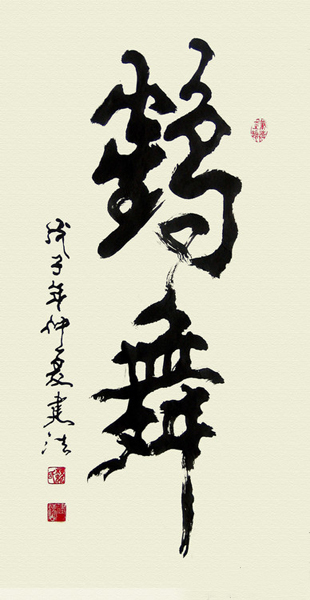 鶴舞
戊子年仲夏建法